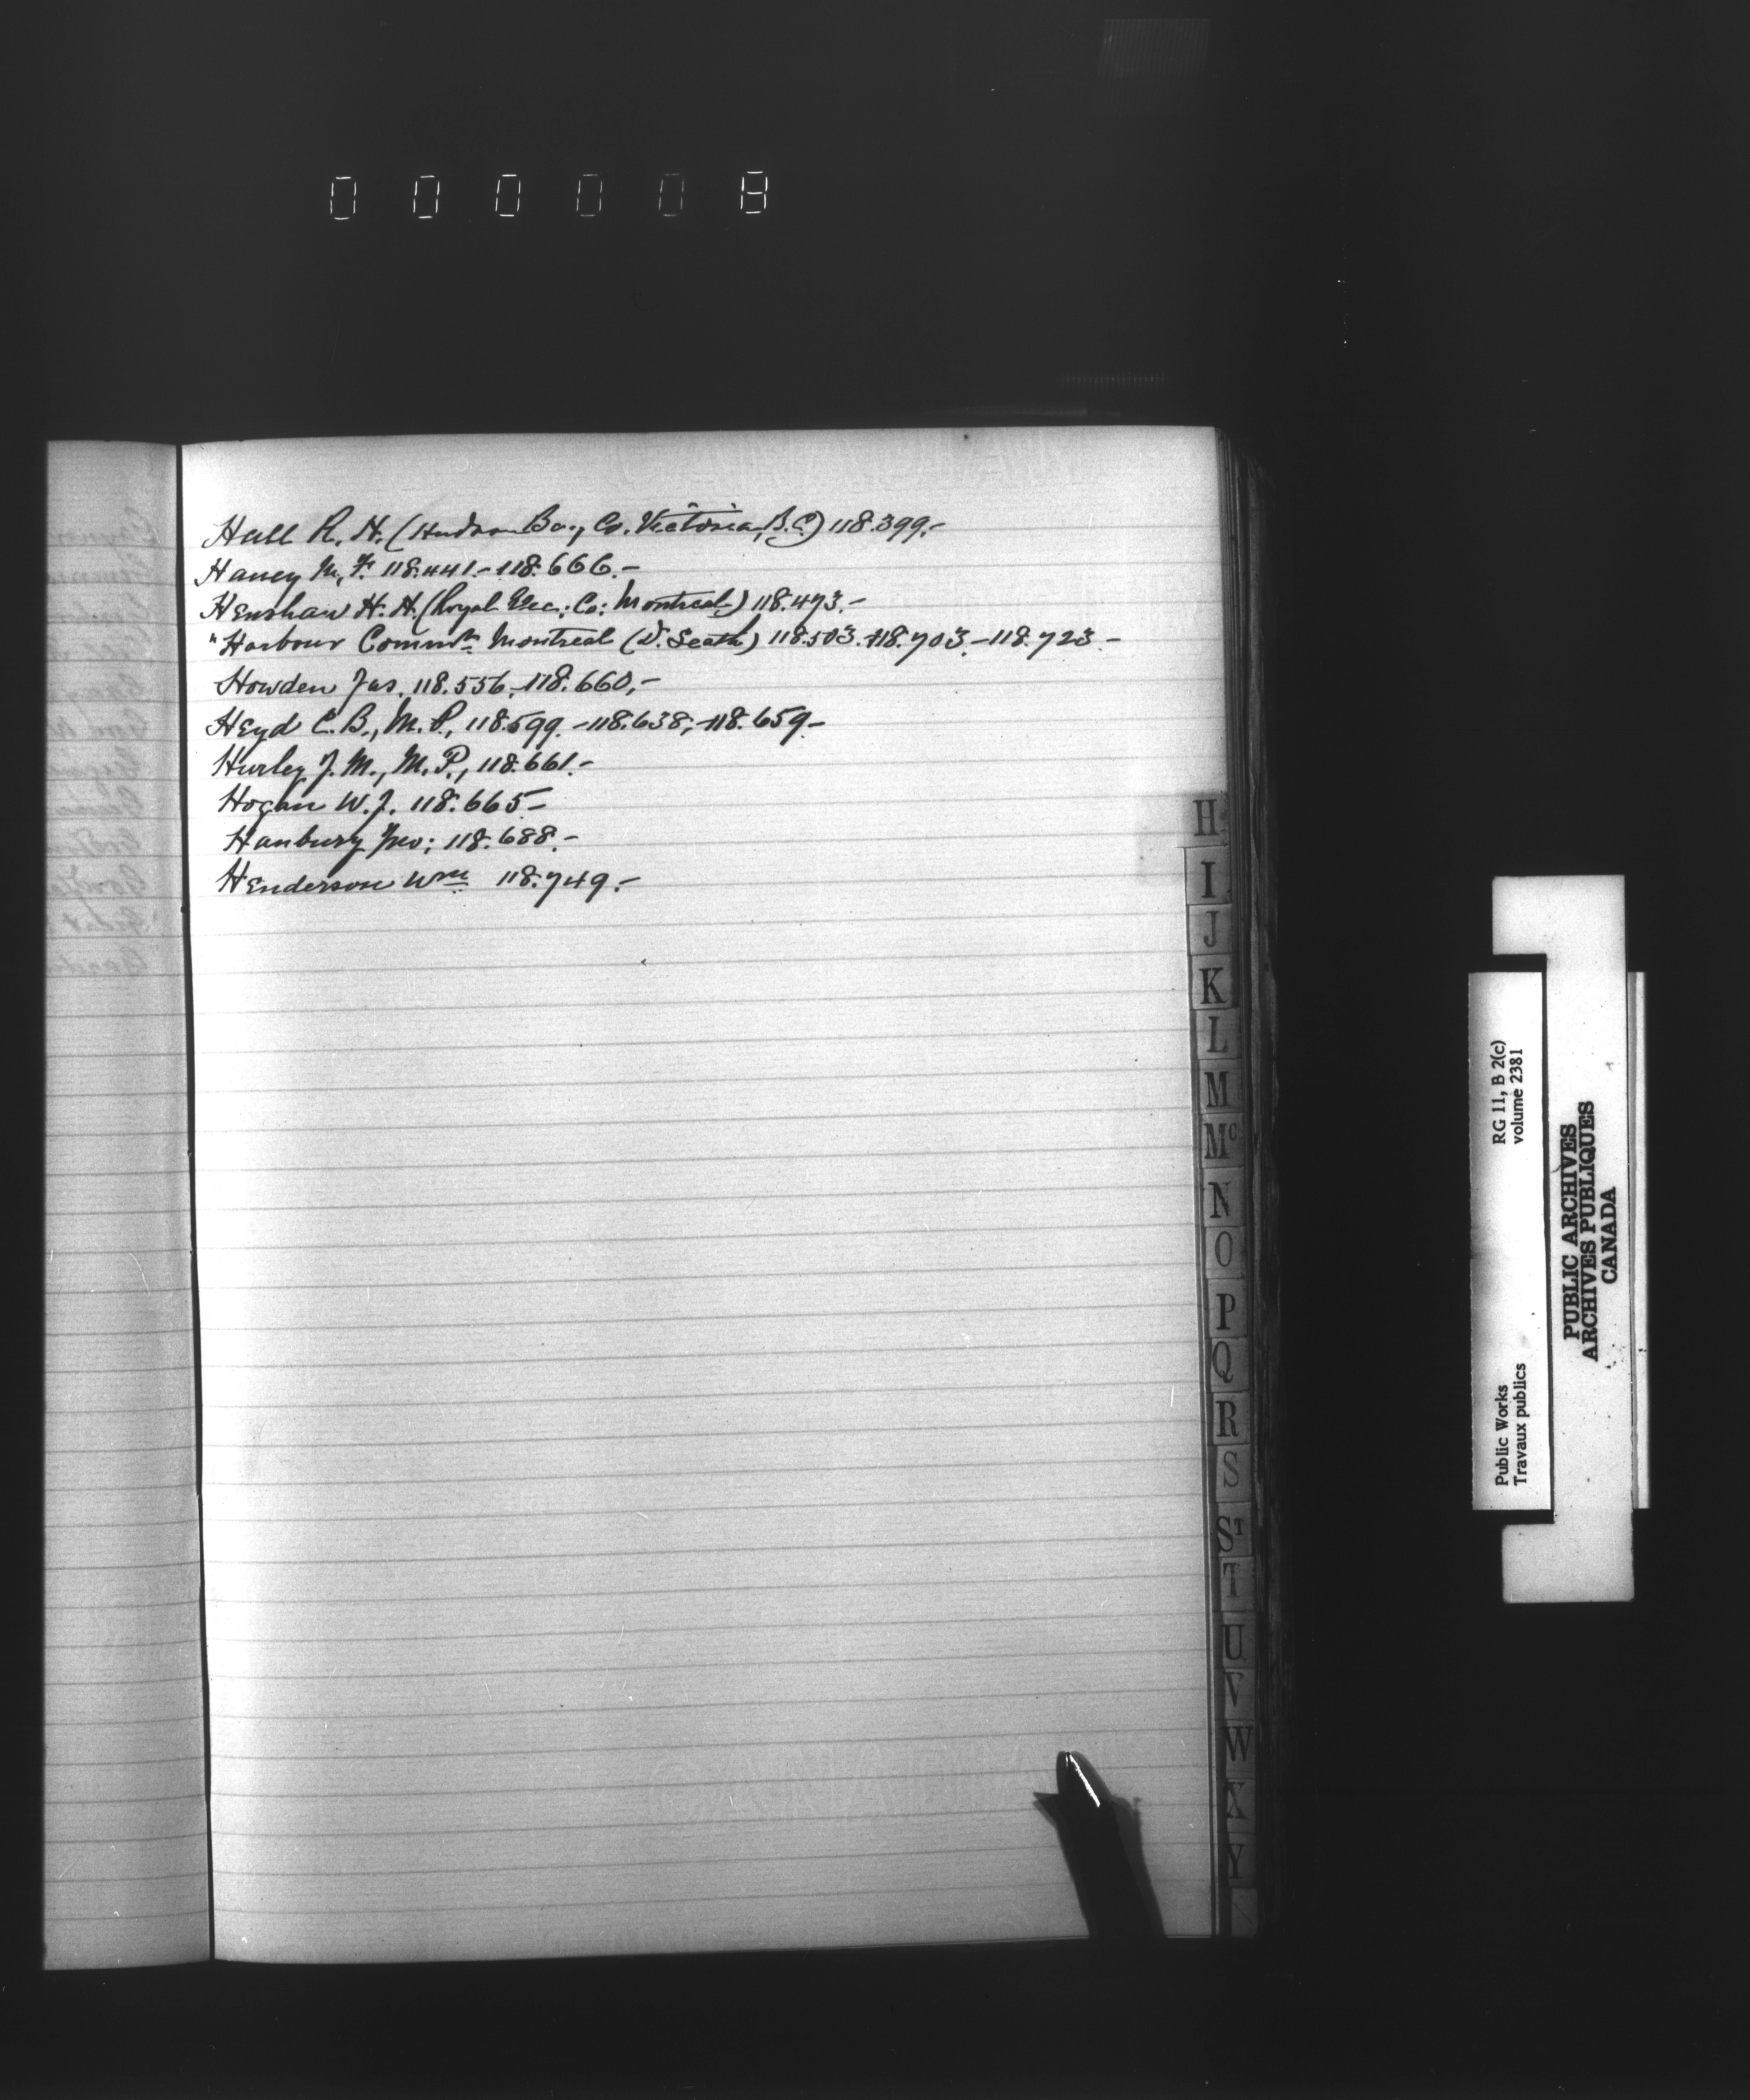 000008
Hall R. H. (Hudson Bay Co. Victoria, B.C.) 118.399.-
Haney M. F. 118.441.-118.666.-
Henshaw H. H. (Royal Elec: Co: Montreal) 118.473.-
"Harbour Commrs. Montreal (D. Seath) 118.503.-118.703.-118.723.-
Howden Jas. 118.556.-118.660,-
Heyd C. B., M. P., 118.599.-118.638,-118.659-
Hurley J. M., M. P., 118.661.-
Hogan W. J. 118.665-
Hanbury Jno: 118.688.-
Henderson Wm 118.749.-
H
I
J
K
L
M
Mc
N
O
P
Q
R
S
ST
T
U
V
W
X
Y
Public Works
Travaux publics
RG 11, B 2(c)
volume 2381
PUBLIC ARCHIVES
ARCHIVES PUBLIQUES
CANADA